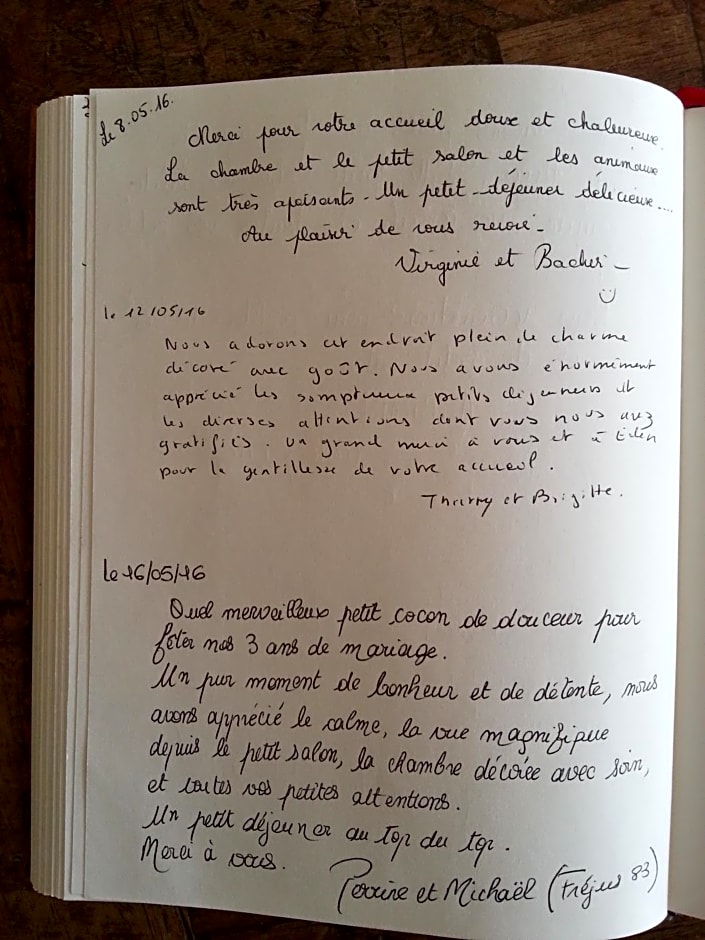 Le 8.05.16.
Merci pour votre accueil doux et chaleureux.
La chambre et le petit salon et les animaux
sont très apaisants - Un petit-déjeuner délicieux....
Au plaisir de vous revoir -
Virginie et
le 12/05/16
Nous adorons cet endroit plein de charme
décoré avec goût. Nous avons énormément
apprécié les somptueux petits déjeuners et
les diverses attentions dont vous nous avez
gratifiés. Un grand merci à vous et à
pour la gentillesse de votre accueil.
Thierry et Brigitte.
le 16/05/16
Quel merveilleux petit cocon de douceur pour
fêter nos 3 ans de mariage.
Un pur moment de bonheur et de détente, nous
avons apprécié le calme, la vue magnifique
depuis le petit salon, la chambre décorée avec soin,
et toutes vos petites attentions.
Un petit déjeuner au top du top.
Merci à vous.
Perrine et Michaël (Fréjus 83)